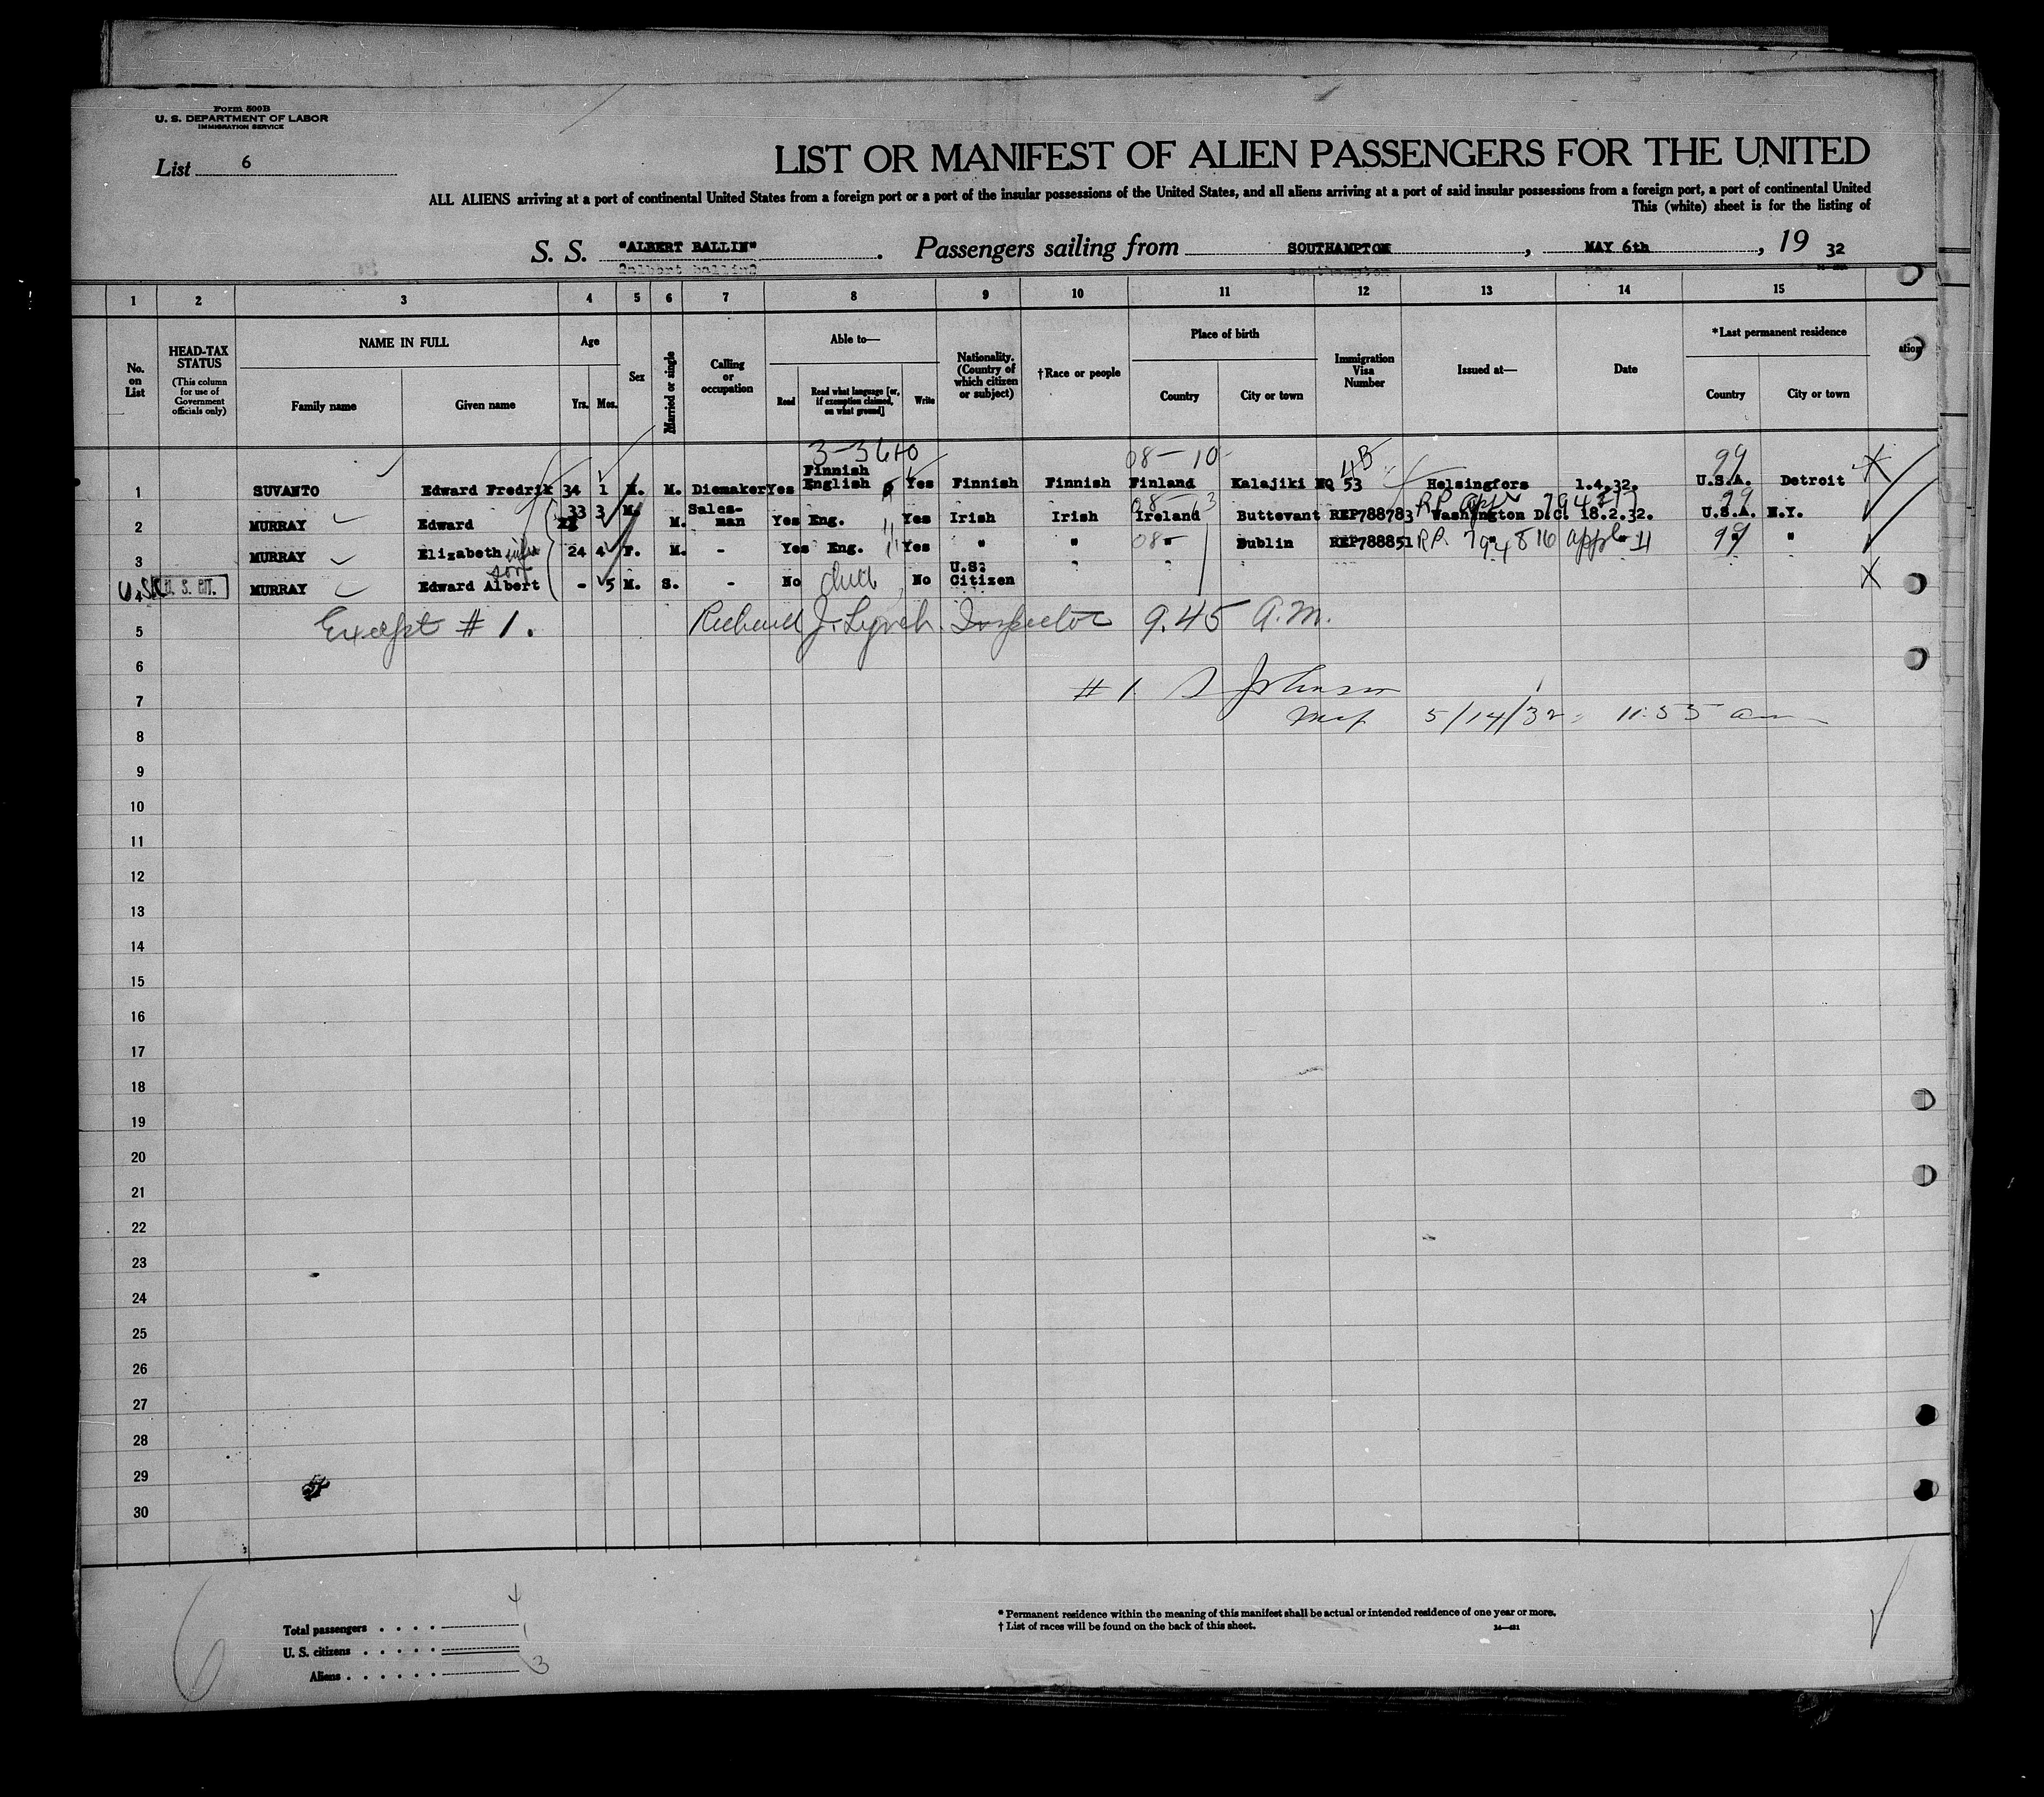 Form 500B
U. S. DEPARTMENT OF LABOR
IMMIGRATION SERVICE
List 6
LIST OR MANIFEST OF ALIEN PASSENGERS FOR THE UNITED
ALL ALIENS arriving at a port of continental United States from a foreign port or a port of the insular possessions of the United States, and all aliens arriving at a port of said insular possessions from a foreign port, a port of continental United
This (white) sheet is for the listing of
S. S. "ALBERT BALLIN". Passengers sailing from SOUTHAMPTON, MAY 6th, 19 32
1 2 3 4 5 6 7 8 9 10 11 12 13 14 15
No. on List
HEAD-TAX STATUS
(This column for use of Government officials only)
NAME IN FULL
Family name
Given name
Age
Yrs. Mos.
Sex
Married or single
Calling or occupation
Able to—
Read
Read what language [or, if exemption claimed, on what ground]
Write
Nationality. (Country of which citizen or subject)
†Race or people
Place of birth
Country
City or town
Immigration Visa Number
Issued at—
Date
*Last permanent residence
Country
City or town
ation
08-10 99
1 SUVANTO Edward Fredrik 34 1 M. M. Diemaker Yes Finnish English Yes Finnish Finnish Finland Kalajiki NQ 53 Helsingfors 1.4.32. U.S.A. Detroit
2 MURRAY Edward 33 3 M. M. Sales-man Yes Eng. Yes Irish Irish Ireland Buttevant REP788783 Washington D.C. 18.2.32. U.S.A. N.Y.
3 MURRAY Elizabeth wife 24 4 F. M. - Yes Eng. Yes " " " Dublin REP788851 RP 794816 99 "
U.S. CIT. MURRAY Edward Albert son - 5 M. S. - No child No U.S. Citizen
5 Except # 1. Richard J. Lynch. Inspector 9.45 A.M.
6
7 # 1. S Johnson
5/14/32 11:53 am
8
9
10
11
12
13
14
15
16
17
18
19
20
21
22
23
24
25
26
27
28
29
30
6
Total passengers 4
U. S. citizens 1
Aliens 3
* Permanent residence within the meaning of this manifest shall be actual or intended residence of one year or more.
† List of races will be found on the back of this sheet.